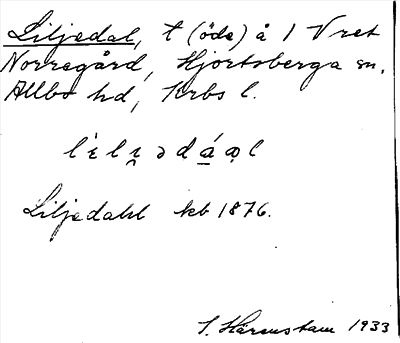 Liljedal, t (öde) å 1 Vret
Norregård, Hjortsberga sn,
Allbo hd, Krbs l.
Liljedahl kb 1876.
Härenstam 1933